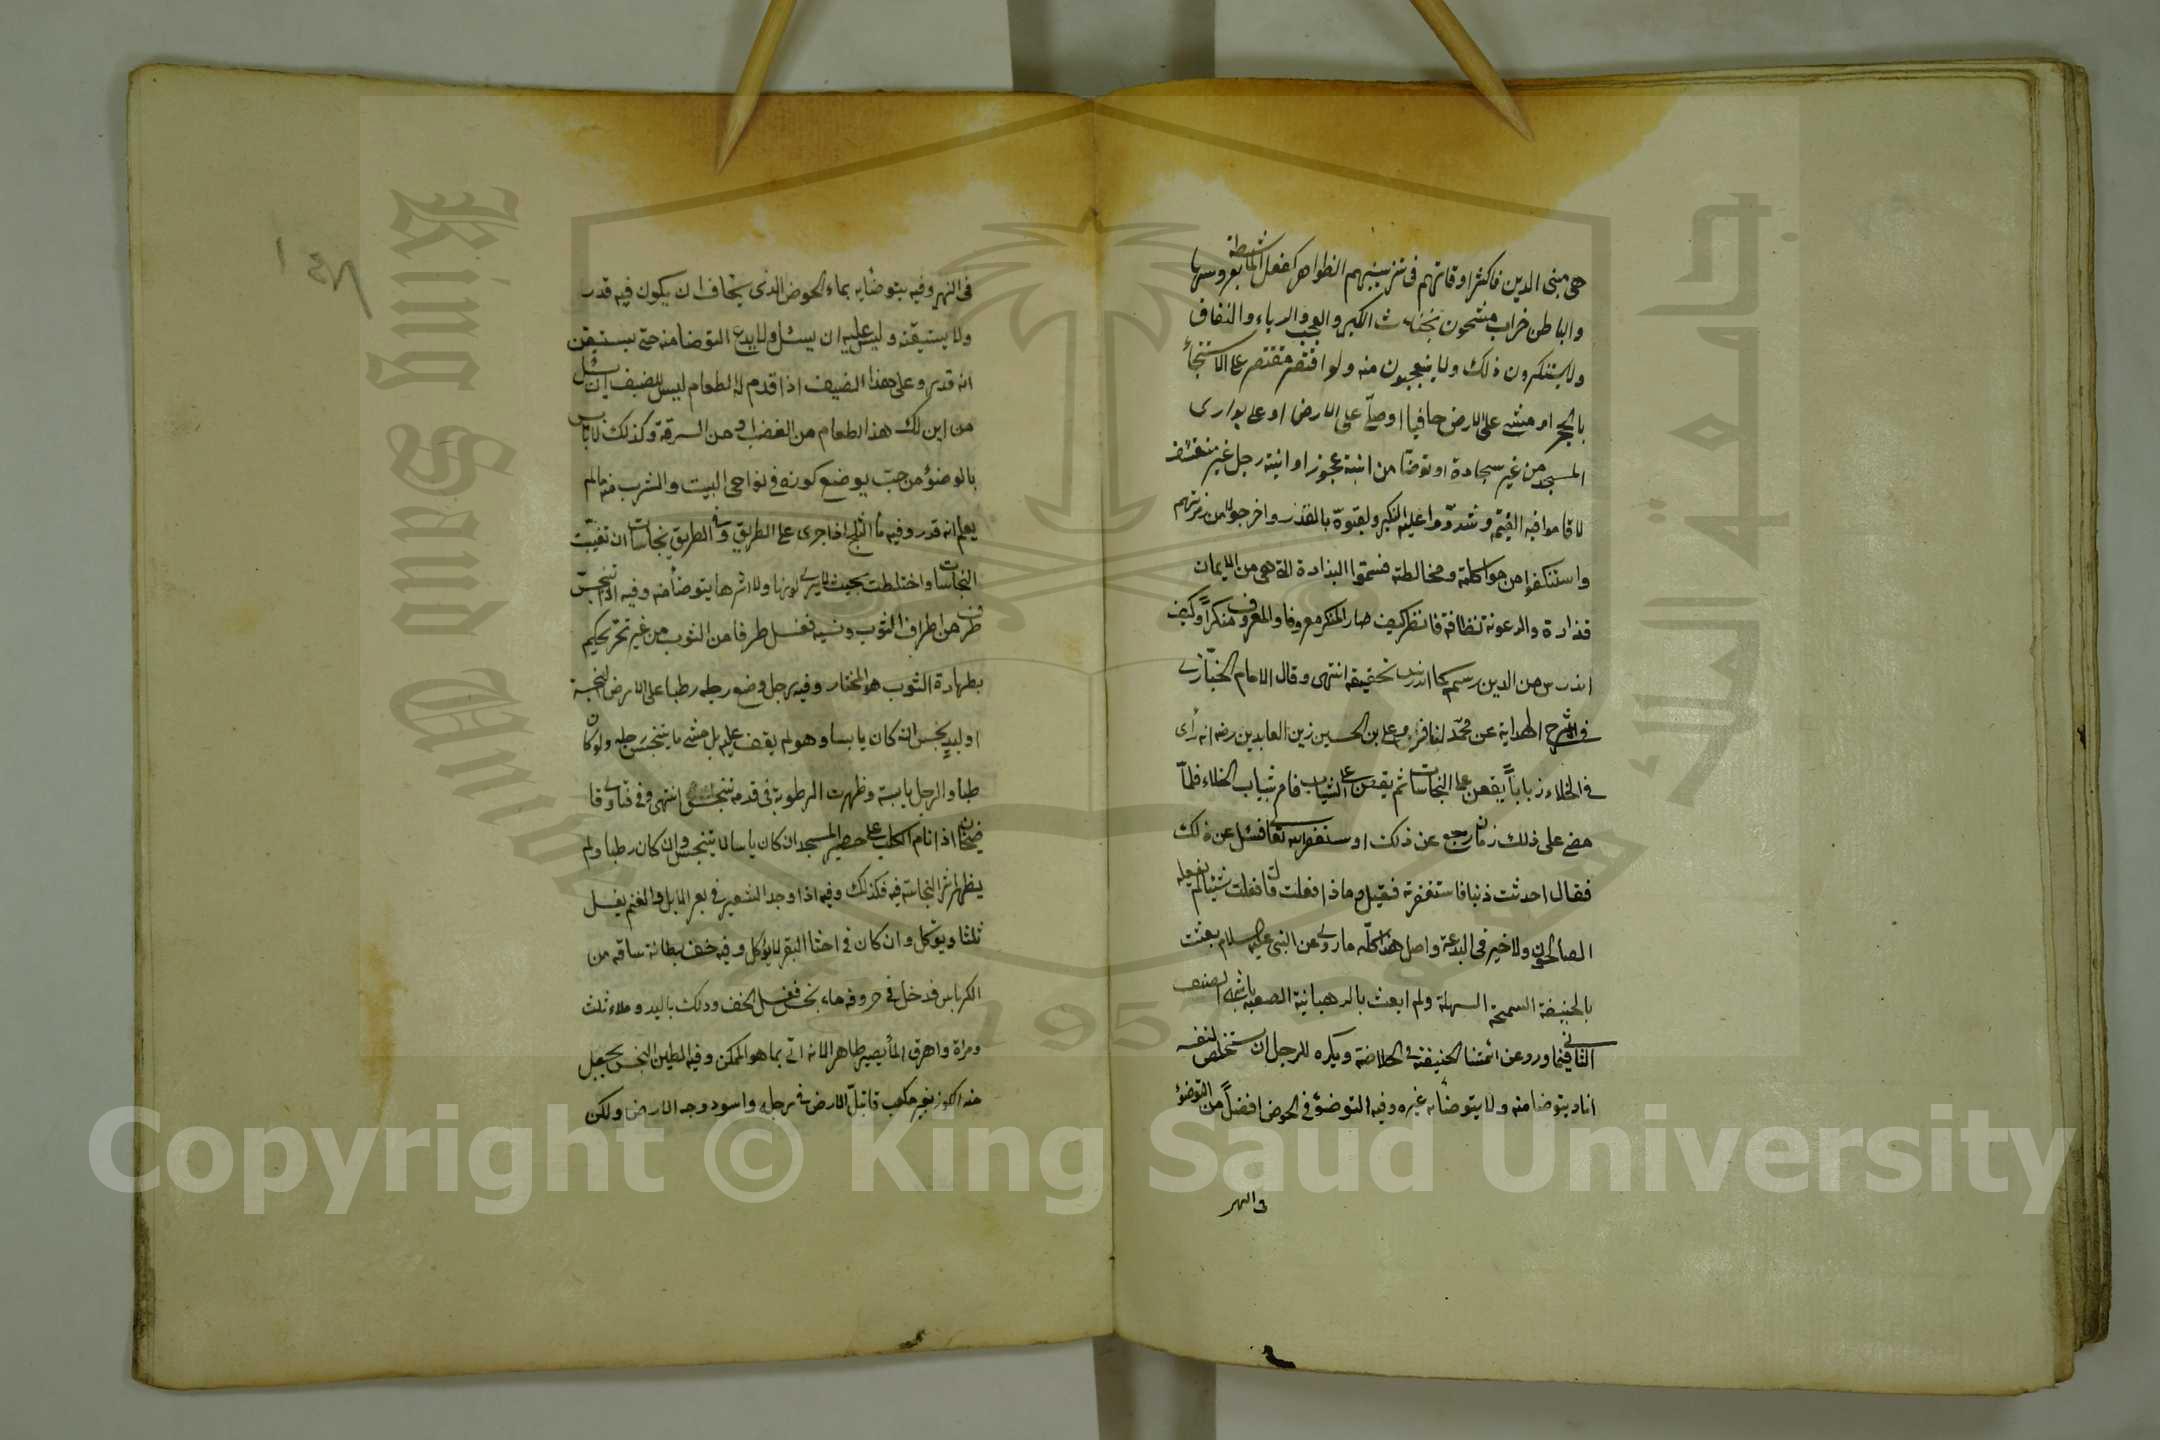 هي مبنى الدين فاكثر اوقاتهم في تزيينهم الظواهر كفعل الماشطة بعروسها
والباطن خراب مشحون بخبائث الكبر والعجب والرياء والنفاق
ولا يستنكرون ذلك ولا يتعجبون منه ولو اقتصر مقتصر على الاستنجاء
بالحجر او مشى على الارض حافيا او صلى على الارض او على بواري
المسجد من غير سجادة او توضأ من آنية عجوز او آنية رجل غير متقشف
لاقاموا فيه القيمة وشددوا عليه النكير ولقبوه بالقذر واخرجوه من زمرتهم
واستنكفوا من مواكلته ومخالطته فسموا البذاذة التي هي من الايمان
قذارة والرعونة نظافة فانظر كيف صار المنكر معروفا والمعروف منكرا وكيف
اندرس من الدين رسمه كما اندرس تحقيقه انتهى وقال الامام الخبازي
في شرح الهداية عن محمد الباقر بن علي بن الحسين زين العابدين رضه انه رأى
في الخلاء ذبابا يقعن على النجاسات ثم يقعن على الثياب فامر بثياب الخلاء فلما
مضى على ذلك زمان رجع عن ذلك واستغفر الله تعالى فسئل عن ذلك
فقال احدثت ذنبا فاستغفرته فقيل وماذا فعلت قال فعلت شيئا لم يفعله
الصالحون ولا خير في البدعة واصل هذا كله ما روي عن النبي عليه السلام بعثت
بالحنيفة السمحة السهلة ولم ابعث بالرهبانية الصعبة الصنف
الثاني فيما ورد عن ائمتنا الحنيفة في الخلاصة ويكره للرجل ان يستخلص لنفسه
اناء يتوضأ منه ولا يتوضأ به غيره وفيه التوضؤ في الحوض افضل من التوضؤ
في النهر
في النهر وفيه يتوضأ به بماء الحوض الذي يخاف ان يكون فيه قذر
ولا يستيقنه وليس عليه ان يسئل ولا يدع التوضأ منه حتى يستيقن
انه قذر وعلى هذا الضيف اذا قدم له الطعام ليس للضيف ان يسئل
من اين لك هذا الطعام من الغضب او من السرقة وكذلك لا بأس
بالوضوء من حب يوضع كوزه في نواحي البيت والشرب منه مالم
يعلم انه قذر وفيه ماء الثلج اذا جرى على الطريق وفي الطريق نجاسات ان تغيبت
النجاسات واختلطت بحيث لا يرى لونها ولا اثرها يتوضأ منه وفيه اذا تنجس
طرف من اطراف الثوب ونسيه فغسل طرفا من الثوب من غير تحر يحكم
بطهارة الثوب هو المختار وفيه رجل وضع رجله رطبا على الارض النجسة
او لبد نجس ان كان يابسا وهو لم يقف عليه بل مشى ما يتنجس رجله ولو كان
طبا والرجل يابسة وظهرت الرطوبة في قدمه تنجس انتهى وفي فتاوى قا
ضيخان اذا نام الكلب على حصير المسجد ان كان يابسا لا يتنجس وان كان رطبا ولم
يظهر اثر النجاسة فيه فكذلك وفيه اذا وجد الشعير في بعر الابل والغنم يغسل
ثلثا ويؤكل وان كان في اخثا البقر لا يؤكل وفيه خف بطانة ساقه من
الكرباس فدخل في خروقه ماء نجس فغسل الخف ودلك باليد وملاء ثلث
ومراة واهرق الماء يصير طاهر الانه اتى بما هو الممكن وفيه الطين النجس يجعل
منه الكوز قابتل الارض في رجله واسود وجه الارض ولكن
جامعة الملك سعود
King Saud University
1957
Copyright © King Saud University